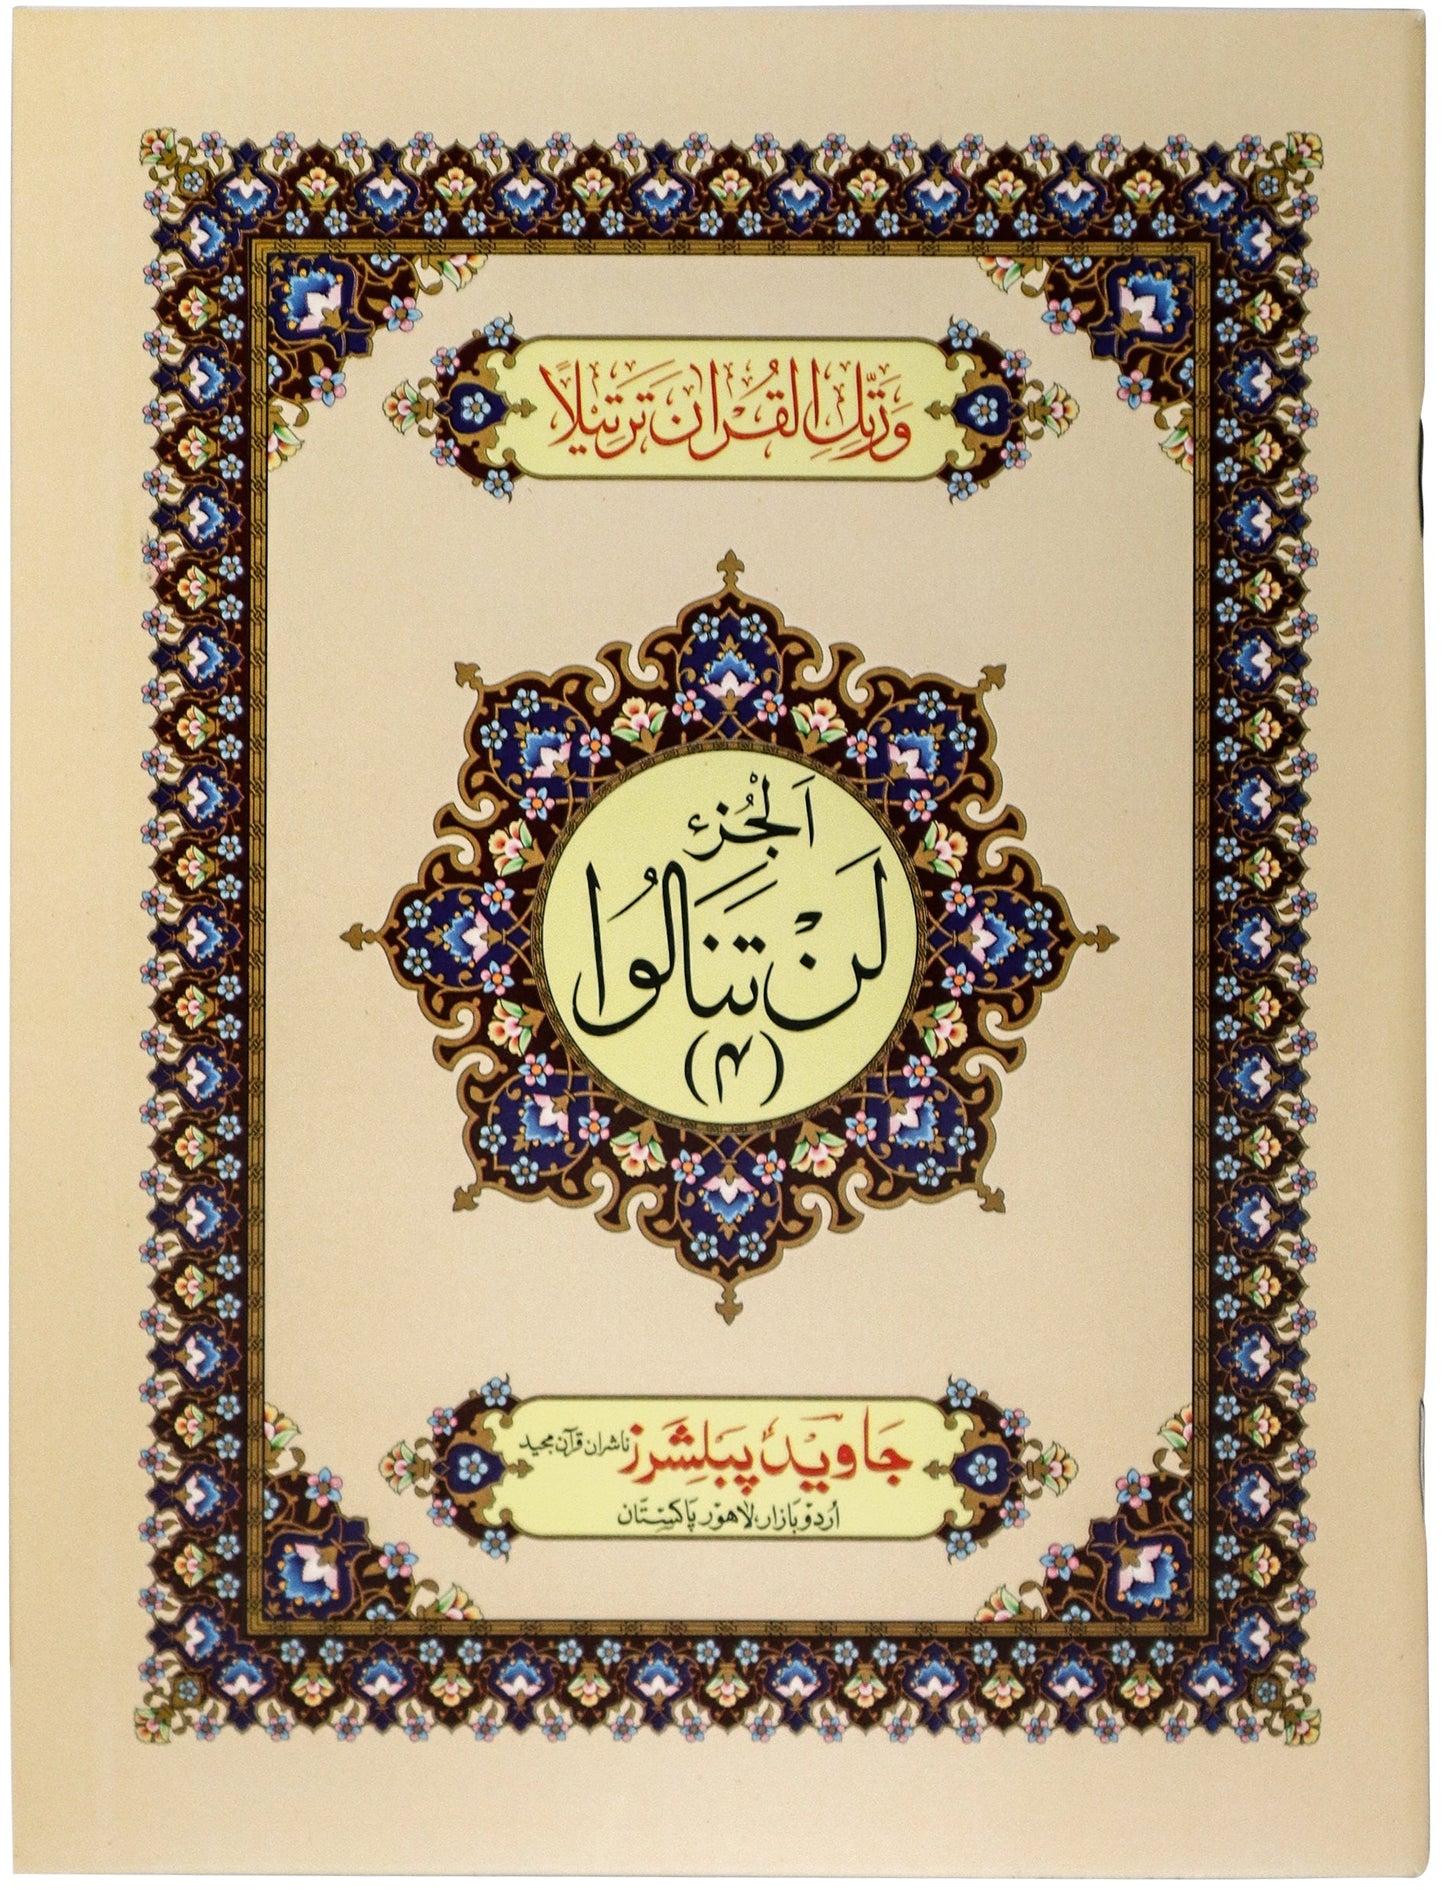 وَرَتِّلِ الْقُرْاٰنَ تَرْتِيْلًا
اَلْجُزْءُ
لَنْ تَنَالُوا
(۴)
جَاوِید پَبلِشَرز ناشران قرآن مجید
اُردو بازار، لاهور پاکستان